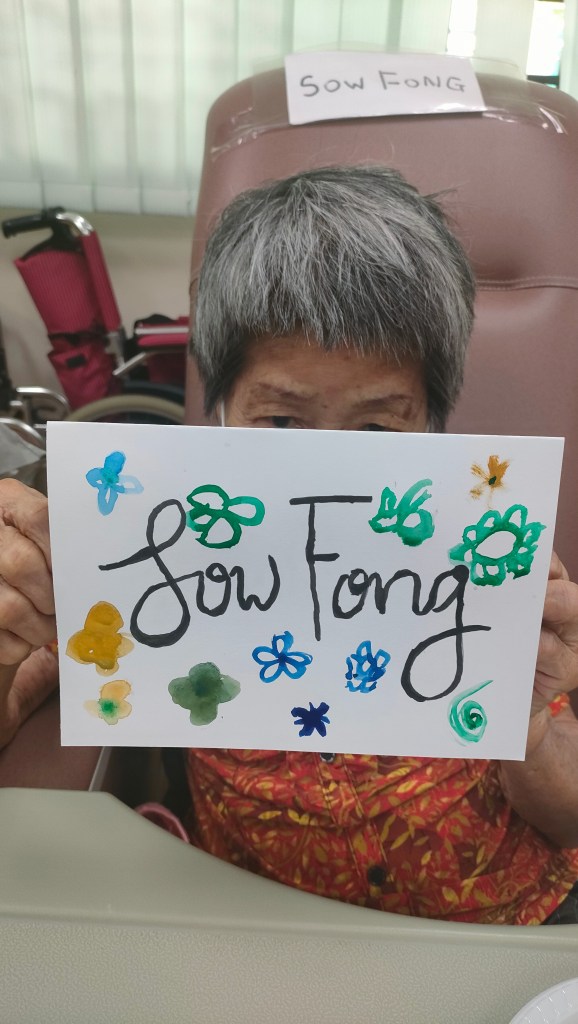 SOW FONG
Sow Fong